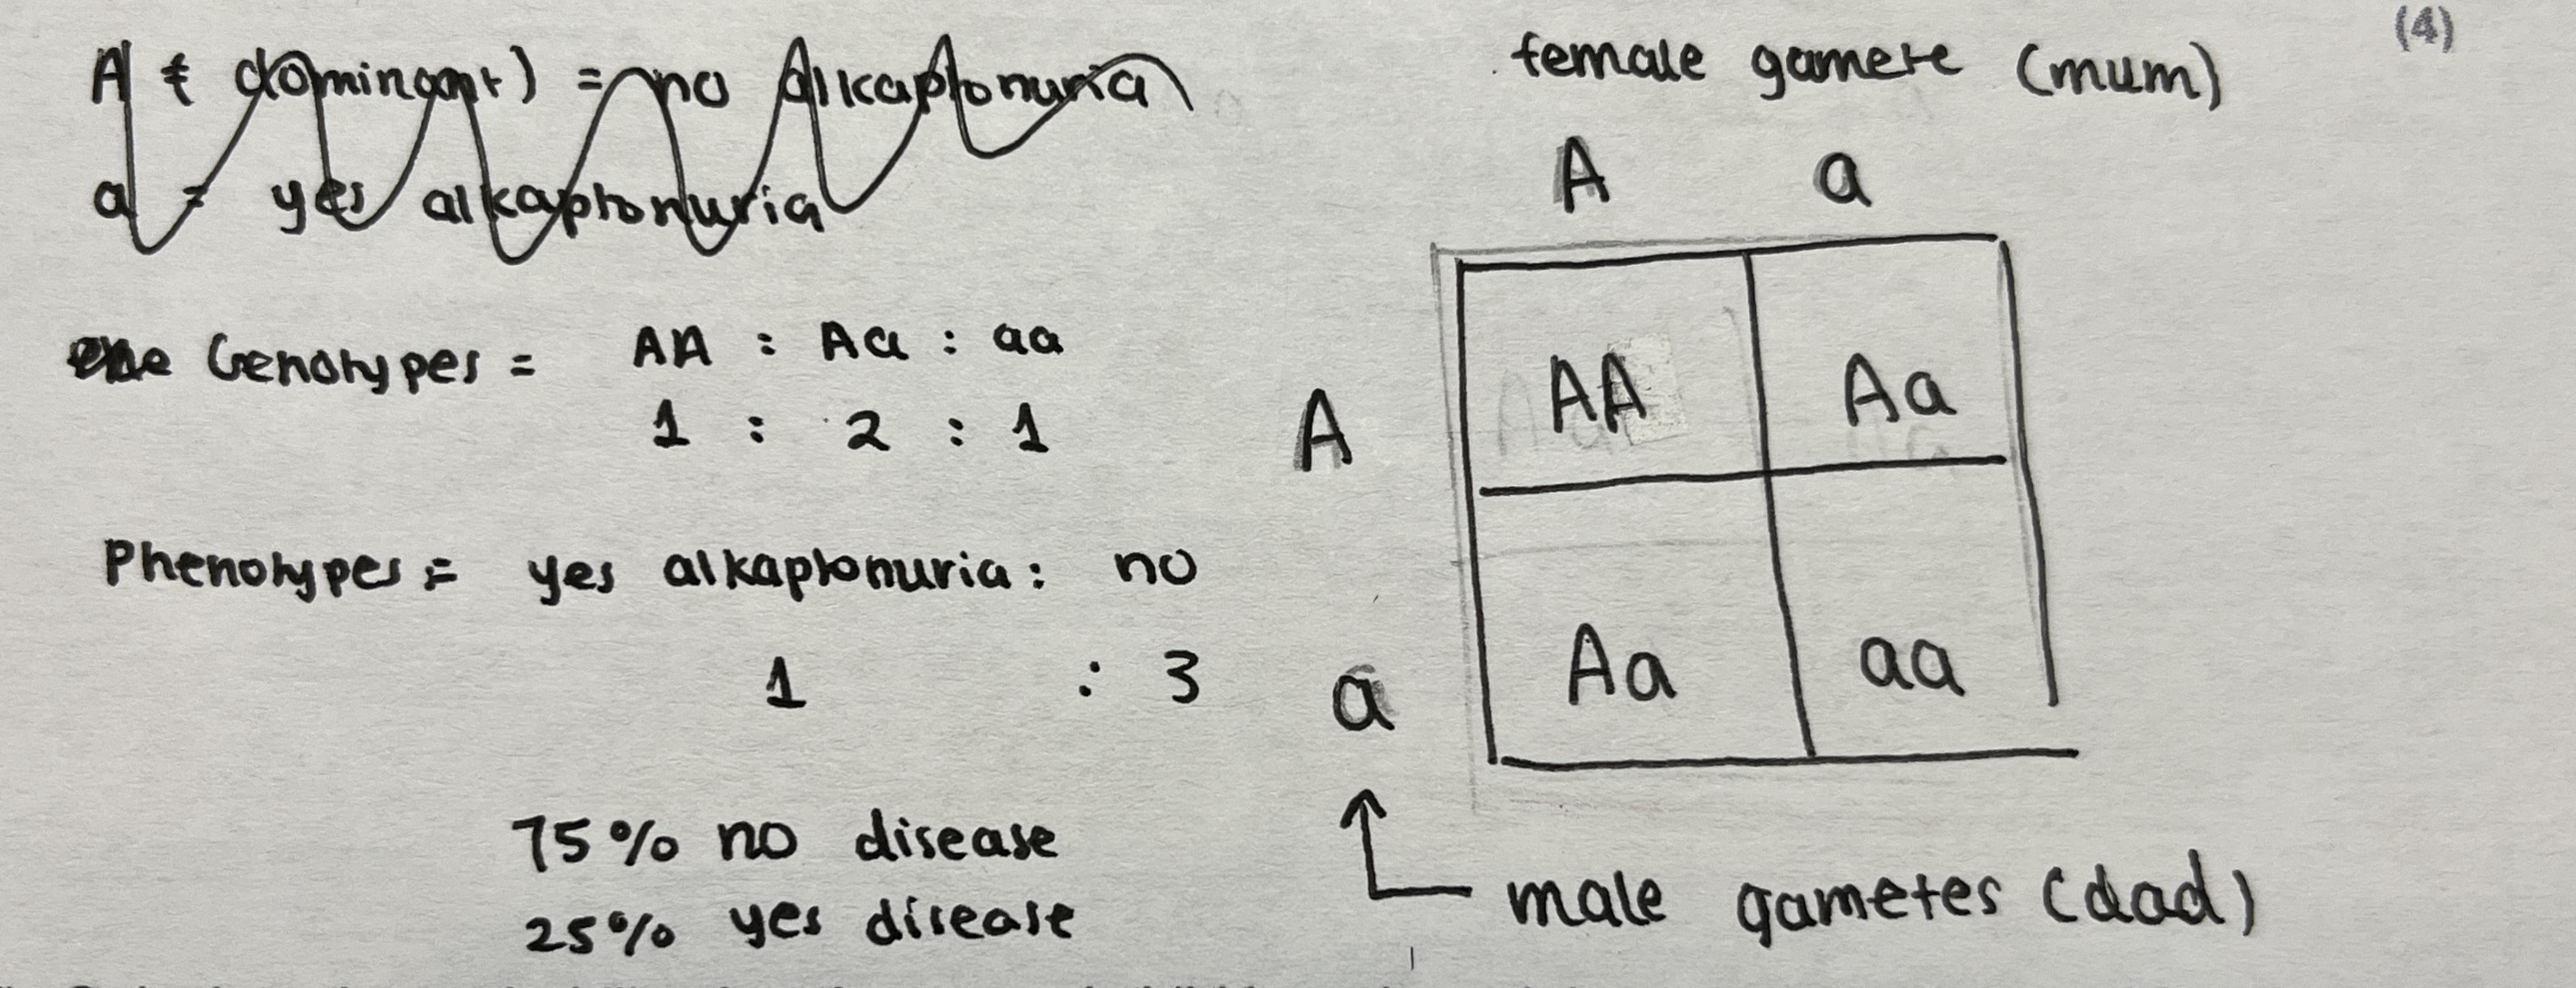 A ( dominant) = no alkaptonuria
a = yes alkaptonuria
Genotypes = AA : Aa : aa
1 : 2 : 1
Phenotypes = yes alkaptonuria : no
1 : 3
75% no disease
25% yes disease
(4)
female gamete (mum)
A a
A AA Aa
a Aa aa
male gametes (dad)